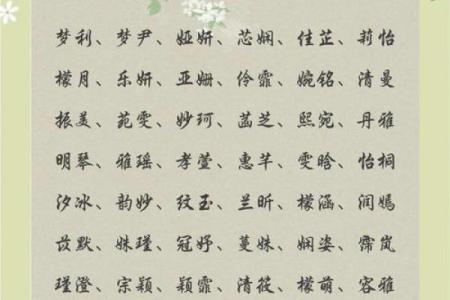 梦利、梦尹、娅妍、芯娴、佳芷、莉怡
檬月、乐妍、亚姗、伶霏、婉铭、清曼
振美、苑雯、妙珂、菡芝、熙宛、丹雅
明琴、雅瑶、孝萱、惠芊、雯晗、怡桐
汐冰、韵妙、纹玉、兰昕、檬涵、润嫣
苡默、姝瑾、冠妤、蔓姝、娴姿、霈岚
瑾澄、宗颖、颖霏、清筱、檬萌、容雅